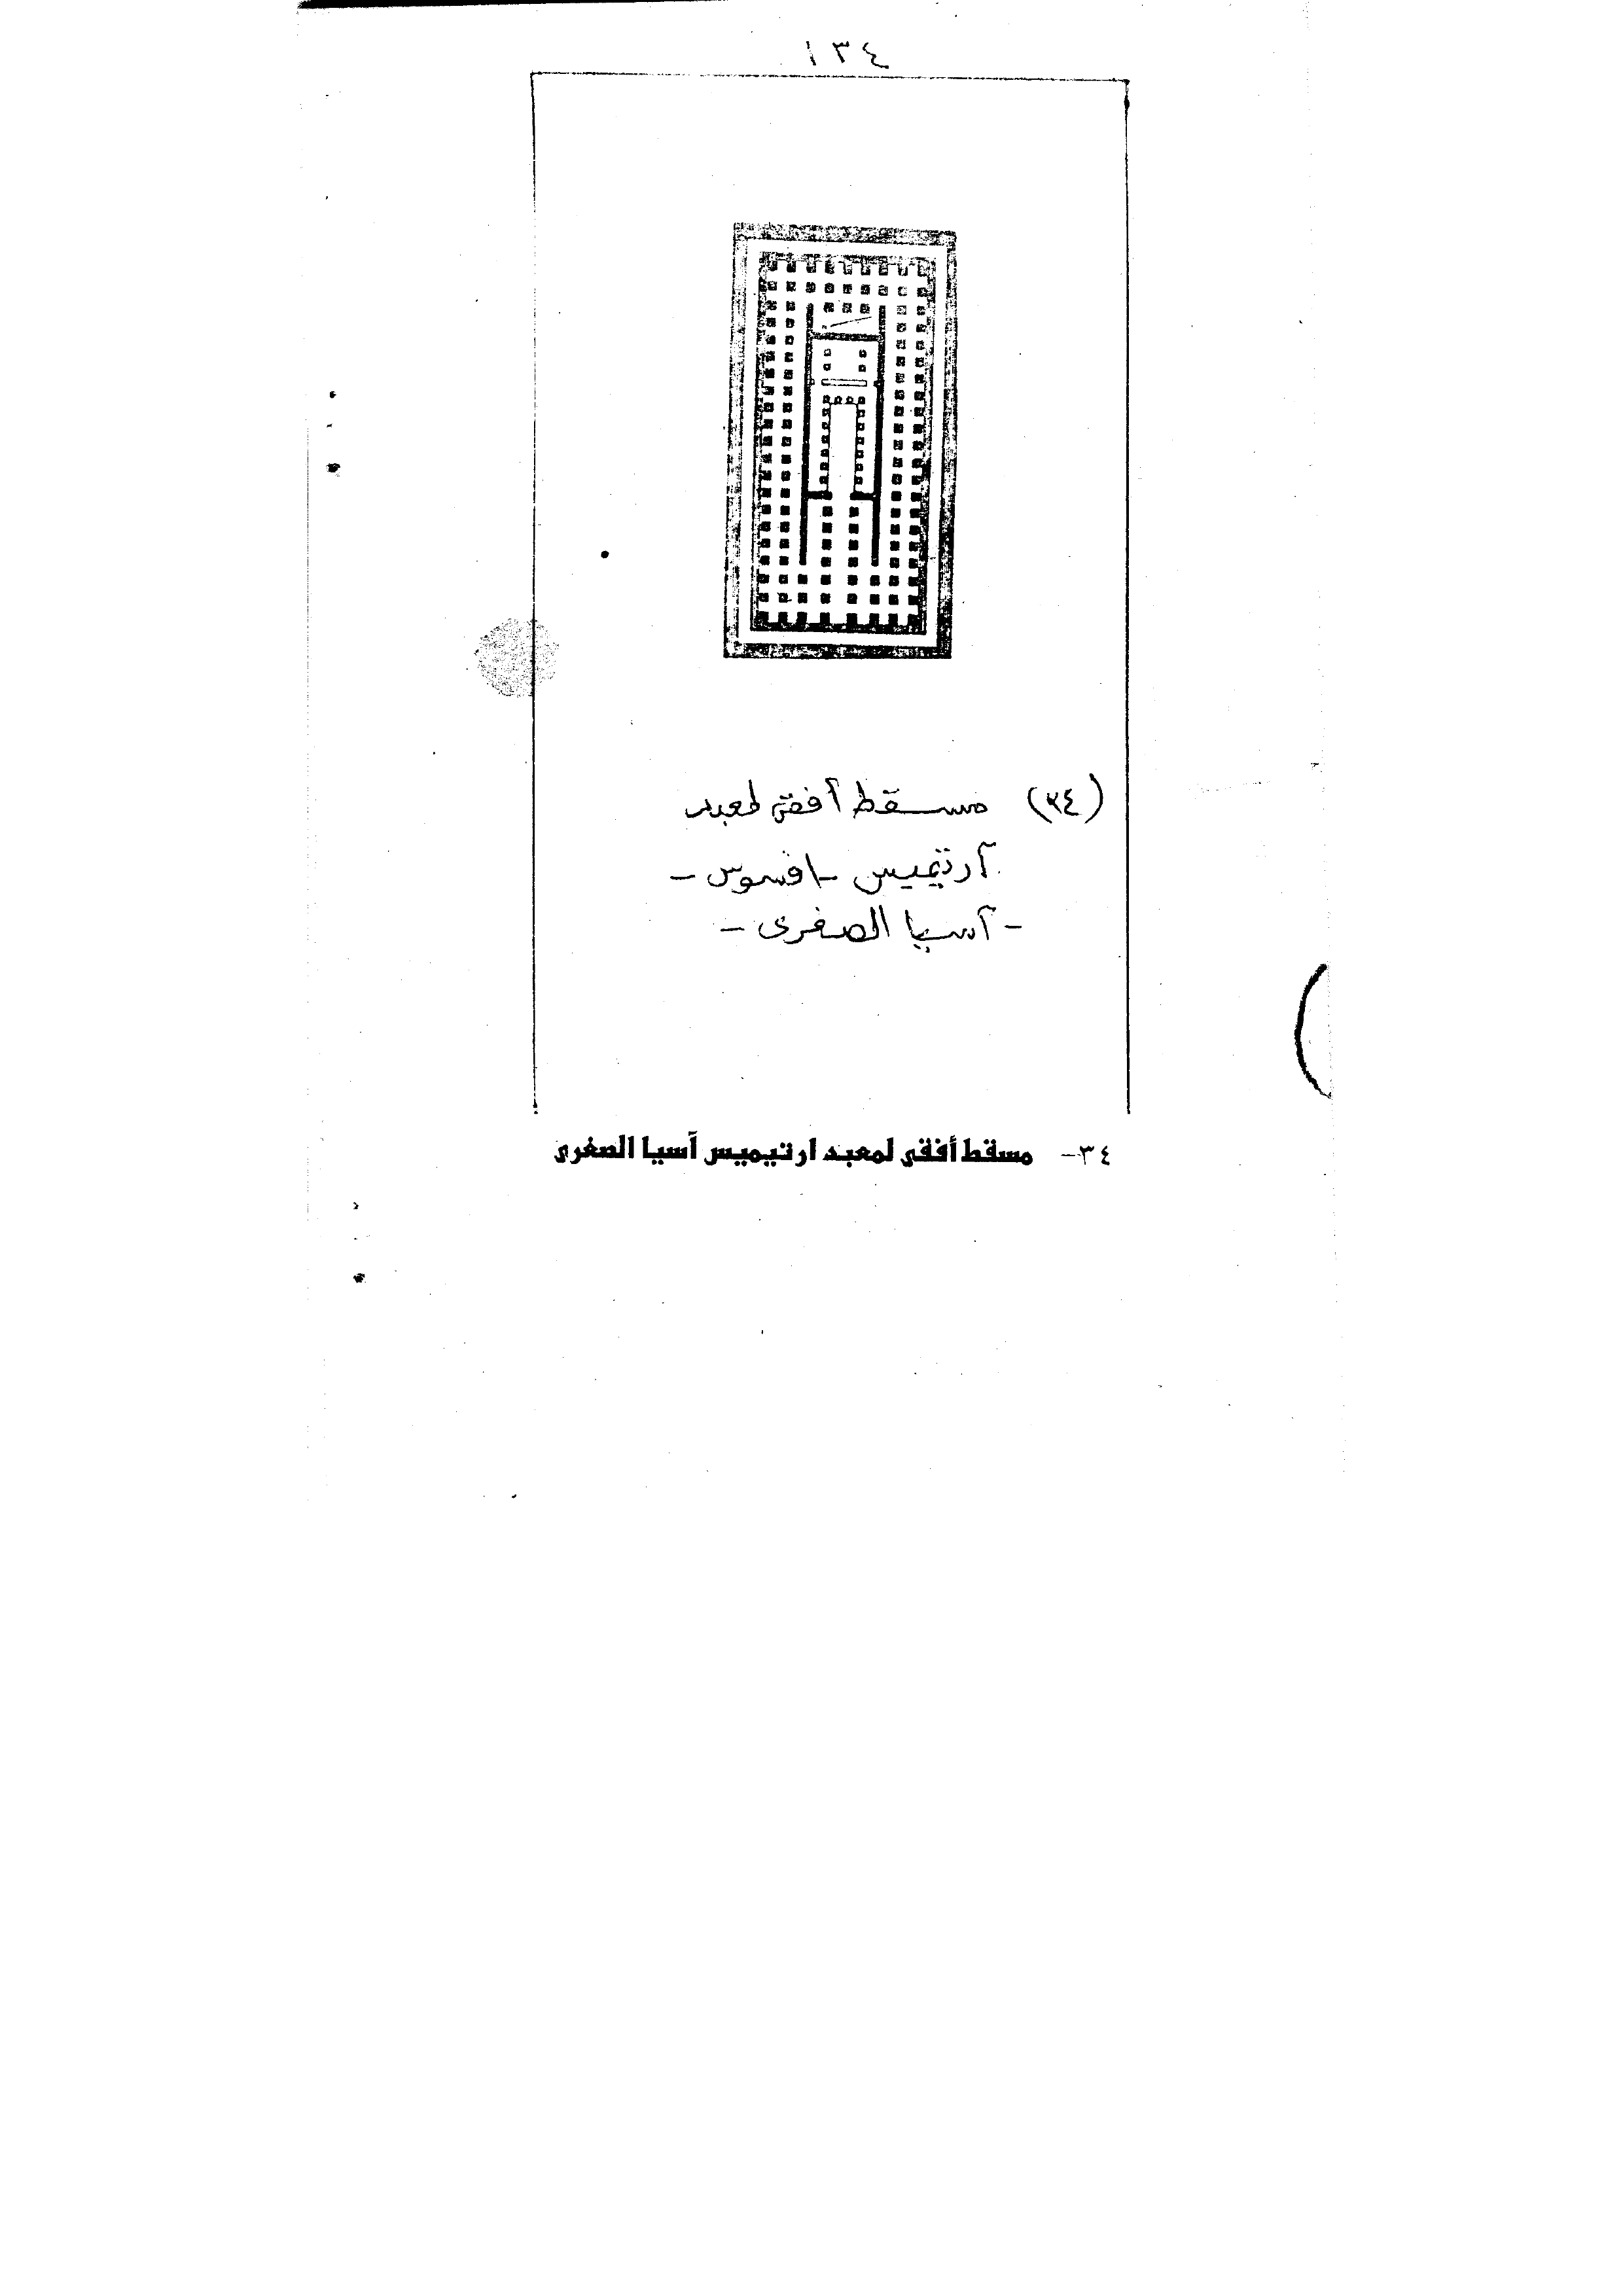 ١٣٤
(٣٤) مسقط أفقى لمعبد
آرتيميس - افسوس -
- آسيا الصغرى -
٣٤- مسقط أفقى لمعبد ارتيميس آسيا الصغرى